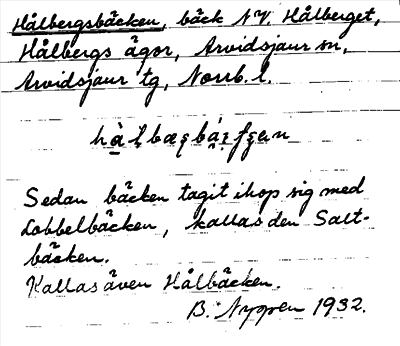 Hålbergsbäcken, bäck NV. Hålberget,
Hålbergs ägor, Arvidsjaur sn,
Arvidsjaur tg, Norrb. l.
Sedan bäcken tagit ihop sig med
Lobbelbäcken, kallas den Salt-
bäcken.
Kallas även Hålbäcken.
B. Nyppen 1932.